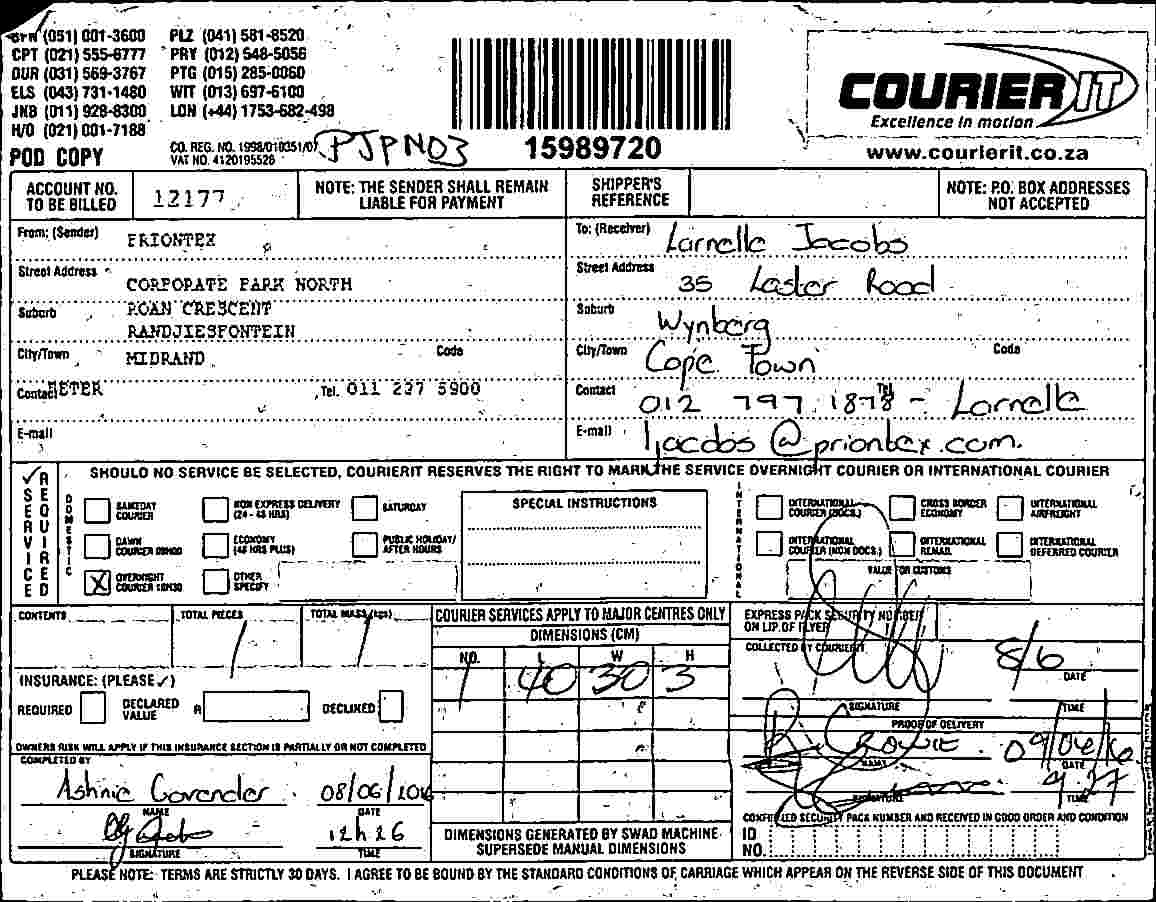 (051) 001-3600 PLZ (041) 581-8520
CPT (021) 555-6777 PRY (012) 548-5056
DUR (031) 569-3767 PTG (015) 285-0060
ELS (043) 731-1480 WIT (013) 697-6100
JNB (011) 928-8300 LON (+44) 1753-682-498
H/O (021) 001-7188
POD COPY
CO. REG. NO. 1998/010351/07
VAT NO. 4120195526
PJPN03
15989720
COURIER IT
Excellence in motion
www.courierit.co.za
ACCOUNT NO. TO BE BILLED
12177
NOTE: THE SENDER SHALL REMAIN LIABLE FOR PAYMENT
SHIPPER'S REFERENCE
NOTE: P.O. BOX ADDRESSES NOT ACCEPTED
From: (Sender) PRIONTEX
Street Address CORPORATE PARK NORTH
Suburb ROAN CRESCENT
RANDJIESFONTEIN
City/Town MIDRAND Code
Contact PETER Tel. 011 237 5900
E-mail
To: (Receiver) Larnelle Jacobs
Street Address 35 Laster Road
Suburb Wynberg
City/Town Cape Town Code
Contact 012 797 1878 - Larnelle Tel.
E-mail ljacobs@priontex.com.
SERVICE REQUIRED
SHOULD NO SERVICE BE SELECTED, COURIERIT RESERVES THE RIGHT TO MARK THE SERVICE OVERNIGHT COURIER OR INTERNATIONAL COURIER
DOMESTIC
SAMEDAY COURIER
NON EXPRESS DELIVERY (24 - 48 HRS)
SATURDAY
DAWN COURIER 09H00
ECONOMY (48 HRS PLUS)
PUBLIC HOLIDAY/ AFTER HOURS
X OVERNIGHT COURIER 10H30
OTHER SPECIFY
SPECIAL INSTRUCTIONS
INTERNATIONAL
INTERNATIONAL COURIER (DOCS.)
CROSS BORDER ECONOMY
INTERNATIONAL AIRFREIGHT
INTERNATIONAL COURIER (NON DOCS.)
INTERNATIONAL REMAIL
INTERNATIONAL DEFERRED COURIER
VALUE FOR CUSTOMS
CONTENTS
TOTAL PIECES 1
TOTAL MASS (kgs) 1
INSURANCE: (PLEASE ✓)
REQUIRED DECLARED VALUE R DECLINED
OWNERS RISK WILL APPLY IF THIS INSURANCE SECTION IS PARTIALLY OR NOT COMPLETED
COMPLETED BY
Ashnie Govender 08/06/2016
NAME DATE
12h26
SIGNATURE TIME
COURIER SERVICES APPLY TO MAJOR CENTRES ONLY
DIMENSIONS (CM)
NO. L W H
1 40 30 3
DIMENSIONS GENERATED BY SWAD MACHINE SUPERSEDE MANUAL DIMENSIONS
EXPRESS PACK SECURITY NUMBER ON LIP OF FLYER
COLLECTED BY COURIERIT
8/6
DATE
SIGNATURE TIME
PROOF OF DELIVERY
09/06/16
NAME DATE
9.27
SIGNATURE TIME
CONFIRMED SECURITY PACK NUMBER AND RECEIVED IN GOOD ORDER AND CONDITION
ID NO.
PLEASE NOTE: TERMS ARE STRICTLY 30 DAYS. I AGREE TO BE BOUND BY THE STANDARD CONDITIONS OF CARRIAGE WHICH APPEAR ON THE REVERSE SIDE OF THIS DOCUMENT